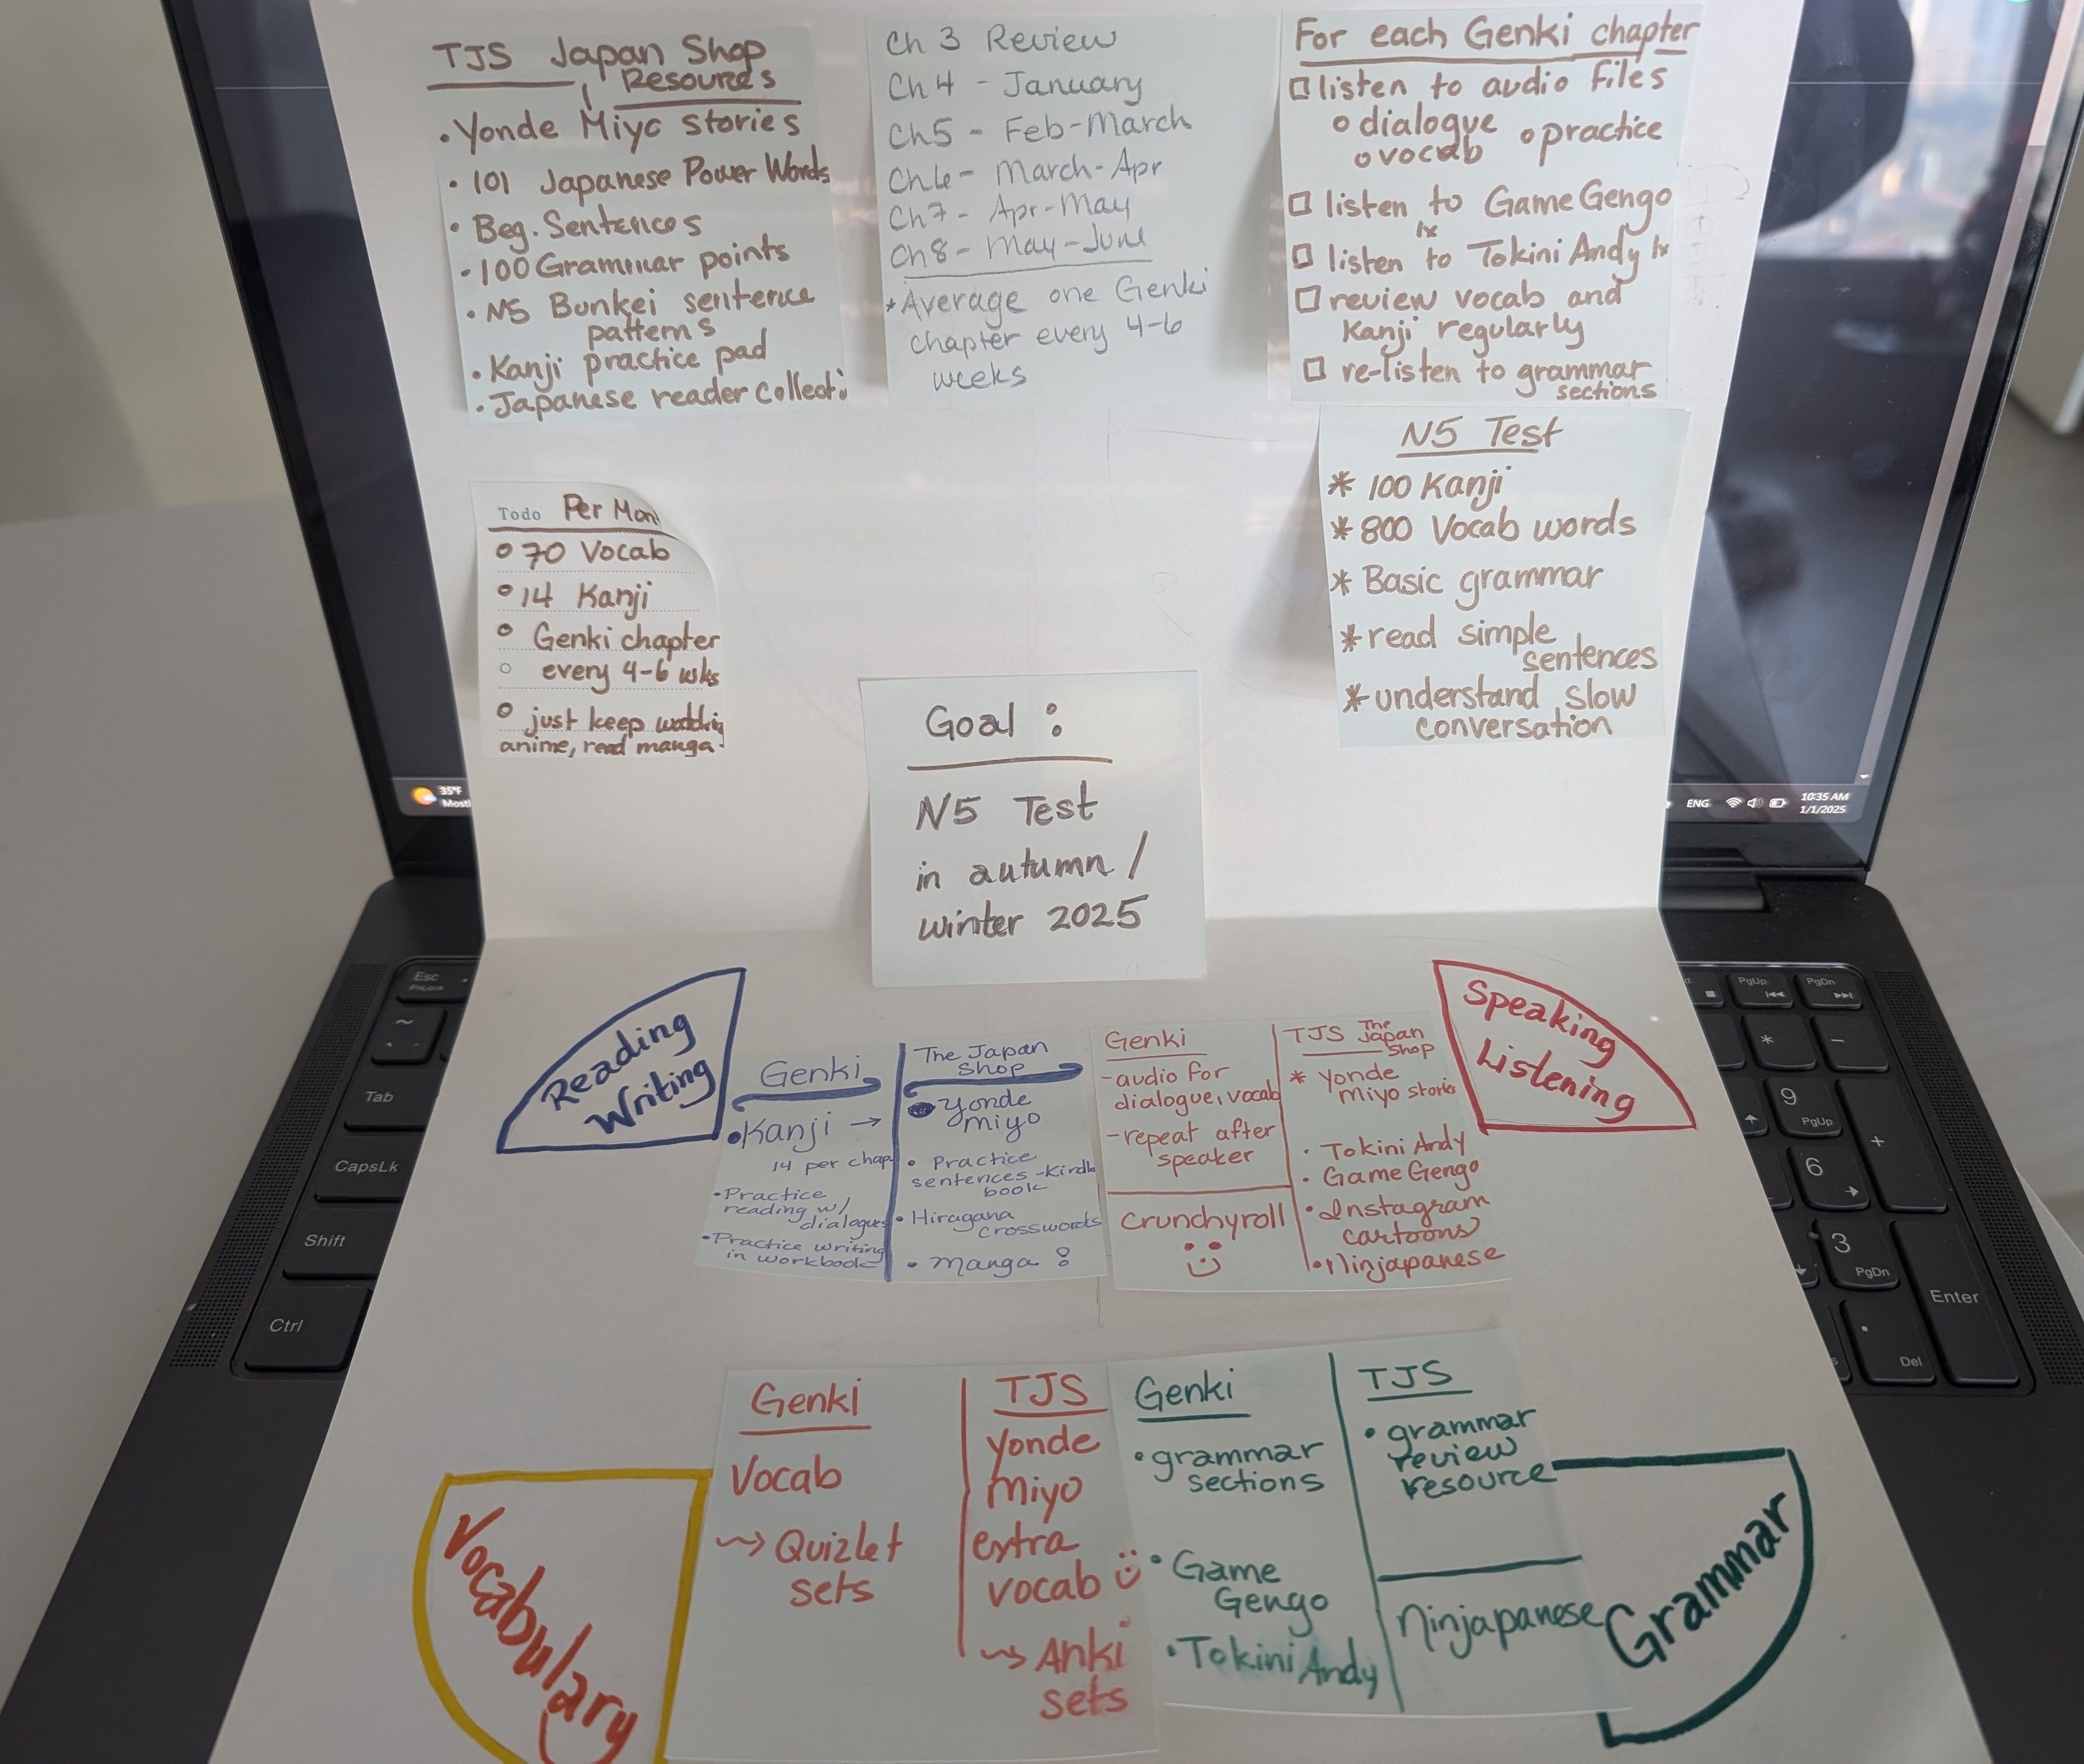 TJS Japan Shop
Resources
• Yonde Miyo stories
• 101 Japanese Power Words
• Beg. Sentences
• 100 Grammar points
• N5 Bunkei sentence
patterns
• Kanji practice pad
• Japanese reader collecti
Ch 3 Review
Ch 4 - January
Ch5 - Feb-March
Ch6 - March-Apr
Ch7 - Apr-May
Ch8 - May-June
*Average one Genki
chapter every 4-6
weeks
For each Genki chapter
listen to audio files
o dialogue o practice
o vocab
listen to GameGengo
1x
listen to Tokini Andy 1x
review vocab and
Kanji regularly
re-listen to grammar
sections
N5 Test
* 100 Kanji
* 800 Vocab words
* Basic grammar
* read simple
sentences
* understand slow
conversation
Todo Per Mon
70 Vocab
14 Kanji
Genki chapter
every 4-6 wks
just keep watching
anime, read manga.
Goal :
N5 Test
in autumn /
winter 2025
35°F
Mostl
ENG
10:35 AM
1/1/2025
Reading
Writing
Genki
• Kanji →
14 per chap
• Practice
reading w/
dialogues
• Practice writing
in workbook
The Japan
Shop
• Yonde
miyo
• Practice
sentences - Kindle
book
• Hiragana
crosswords
• Manga
Genki
- audio for
dialogue, vocab
- repeat after
speaker
Crunchyroll
TJS The
Japan
Shop
* Yonde
Miyo stories
• Tokini Andy
• Game Gengo
• Instagram
cartoons
• Ninjapanese
Speaking
Listening
Vocabulary
Genki
Vocab
→ Quizlet
sets
TJS
Yonde
Miyo
extra
vocab
→ Anki
sets
Genki
• grammar
sections
• Game
Gengo
• Tokini Andy
TJS
• grammar
review
resource
Ninjapanese
Grammar
Esc
FnLock
~
Tab
CapsLk
Shift
Ctrl
PgUp
PgDn
*
-
9
PgUp
+
6
3
PgDn
Enter
.
Del